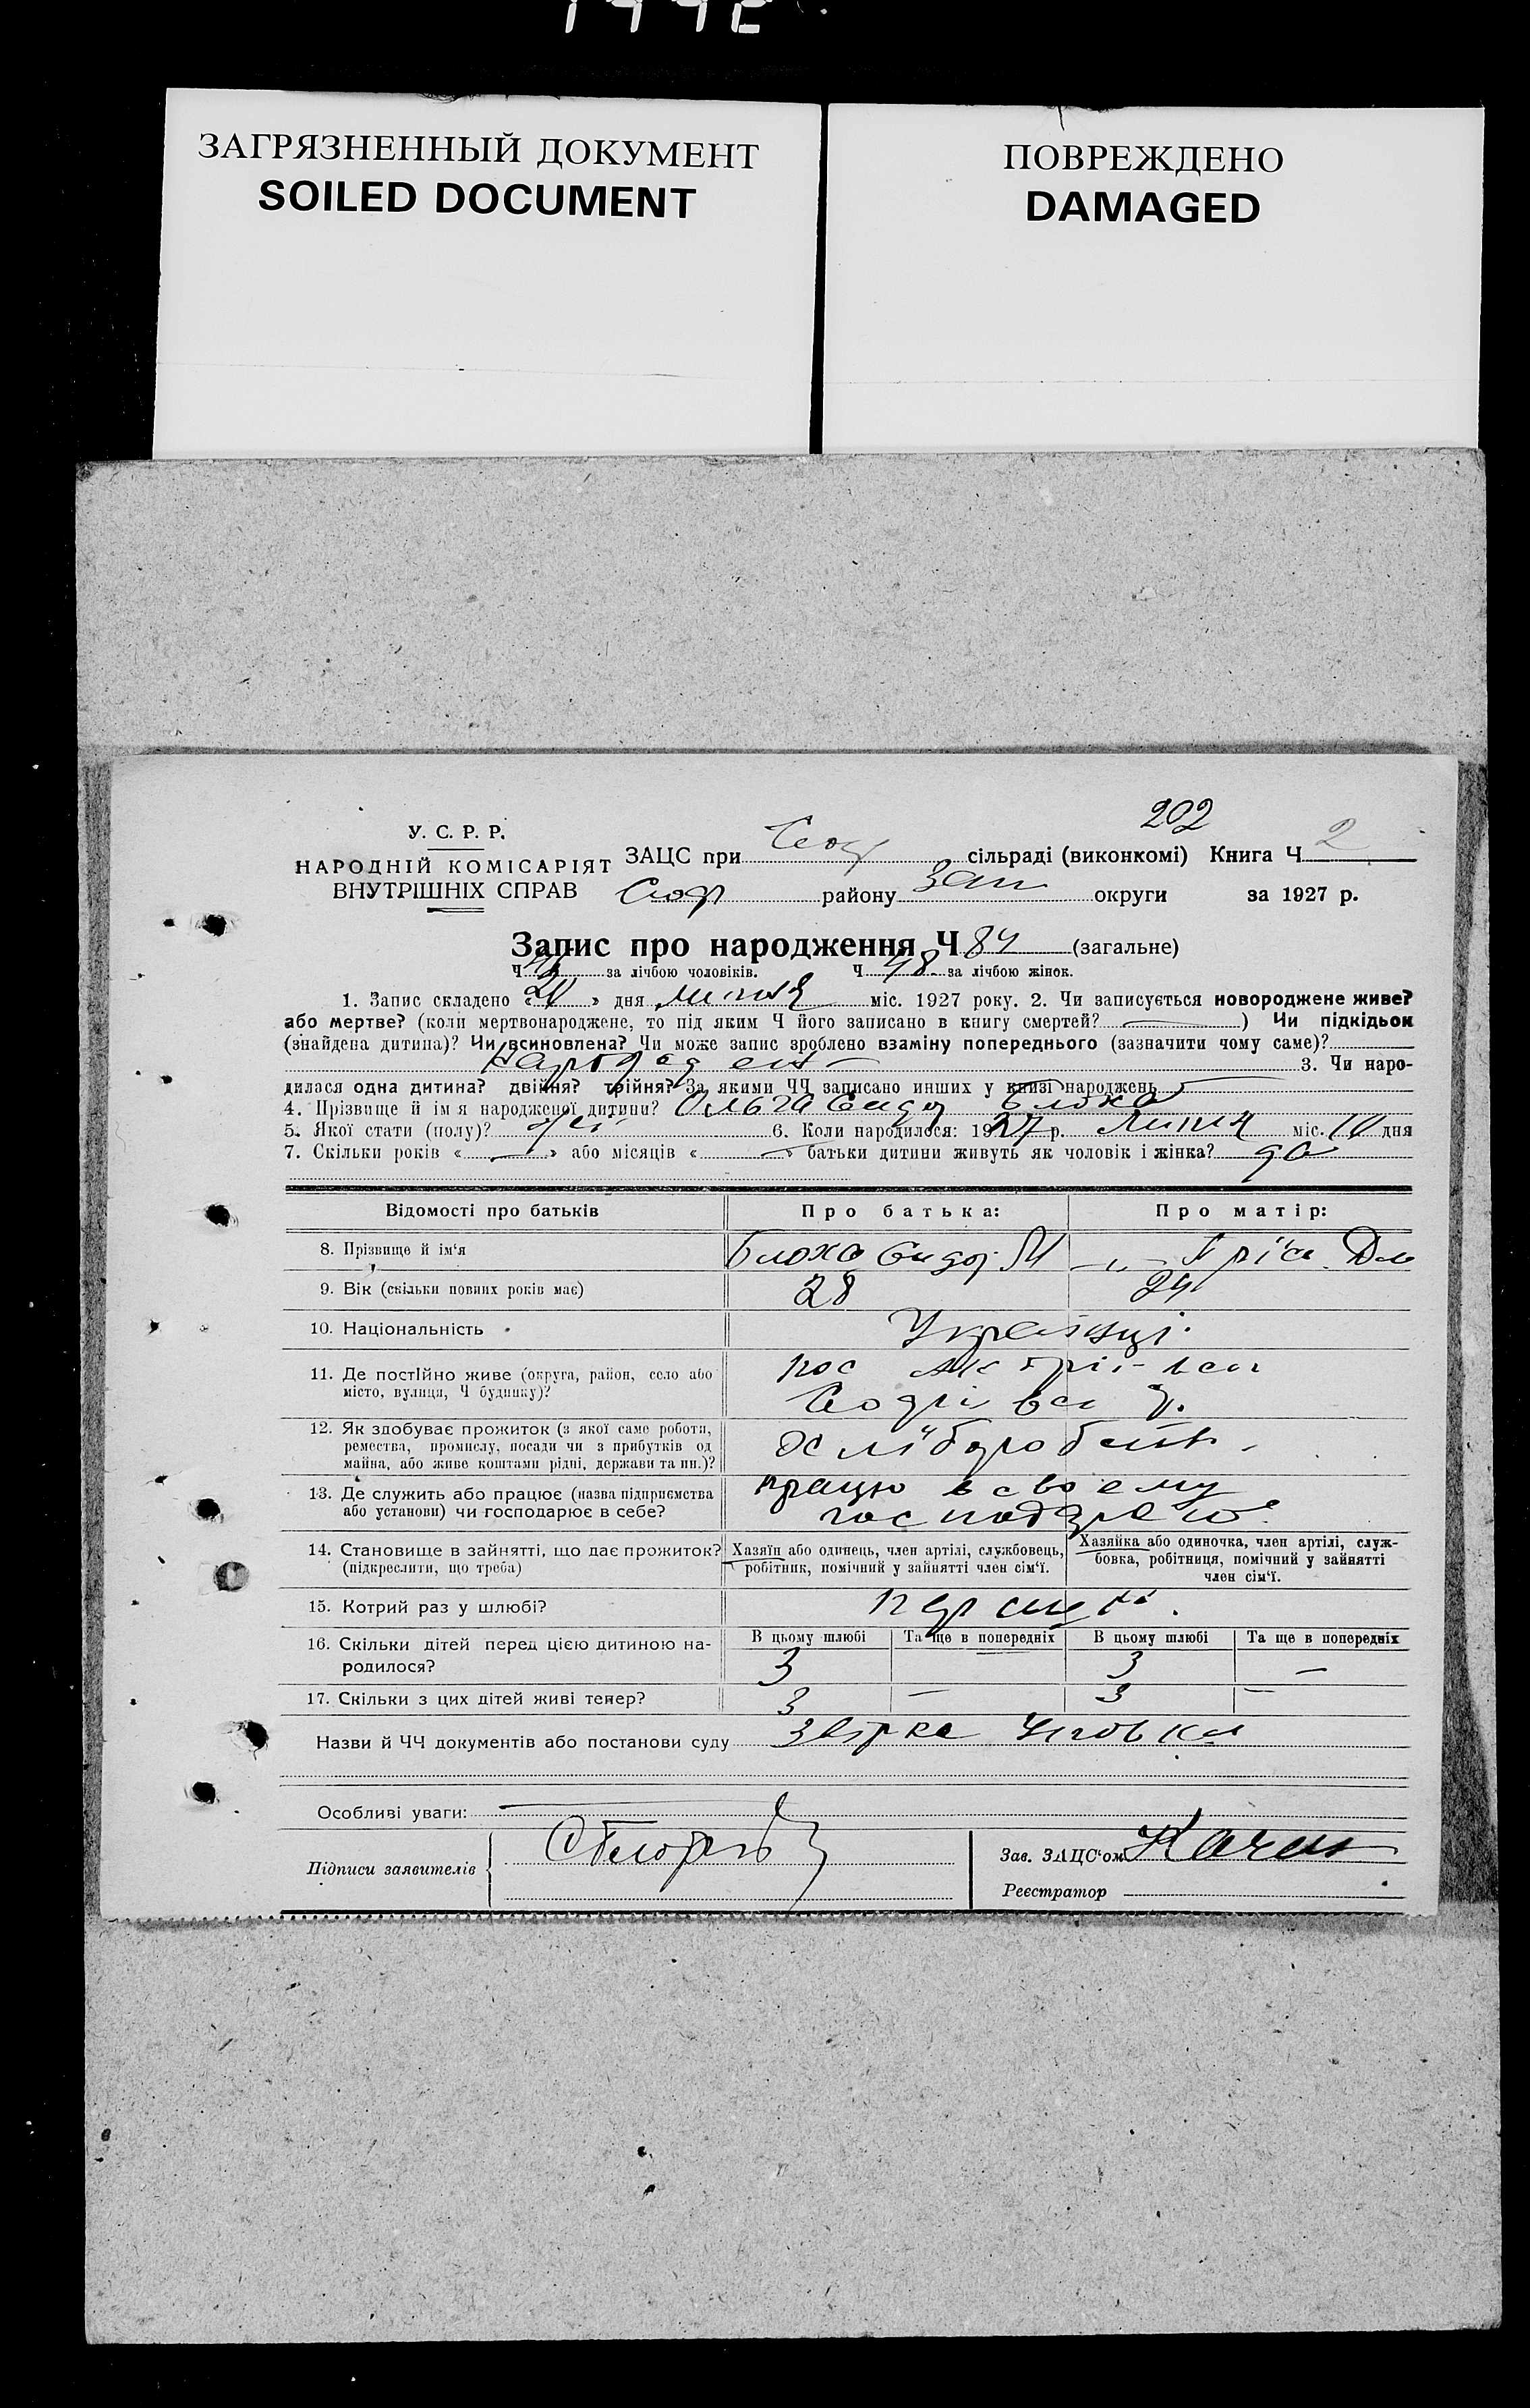 ЗАГРЯЗНЕННЫЙ ДОКУМЕНТ
SOILED DOCUMENT
ПОВРЕЖДЕНО
DAMAGED
202
У. С. Р. Р.
НАРОДНІЙ КОМІСАРІЯТ
ВНУТРІШНІХ СПРАВ
ЗАЦС при сільраді (виконкомі) Книга Ч 2
району Зап округи за 1927 р.
Запис про народження Ч 84 (загальне)
Ч за лічбою чоловіків. Ч 48 за лічбою жінок.
1. Запис складено « » дня липня міс. 1927 року. 2. Чи записується новороджене живе?
або мертве? (коли мертвонароджене, то під яким Ч його записано в книгу смертей? —) Чи підкідьок
(знайдена дитина)? Чи всиновлена? Чи може запис зроблено взаміну попереднього (зазначити чому саме)?
3. Чи наро-
дилася одна дитина? двійня? трійня? За якими ЧЧ записано инших у книзі народжень —
4. Прізвище й імя народженої дитини? Ольга Сидор Блоха
5. Якої стати (полу)? жін 6. Коли народилося: 1927 р. Липня міс. 10 дня
7. Скільки років « — » або місяців « — » батьки дитини живуть як чоловік і жінка? да
Відомості про батьків Про батька: Про матір:
8. Прізвище й ім‘я Блоха Сидор М —„—
9. Вік (скільки повних років має) 28 24
10. Національність Українці
11. Де постійно живе (округа, район, село або
місто, вулиця, Ч будинку)?
12. Як здобуває прожиток (з якої саме роботи, хліборобств
ремества, промислу, посади чи з прибутків од
майна, або живе коштами рідні, держави та ин.)?
13. Де служить або працює (назва підприємства працю в своему
або установи) чи господарює в себе?
14. Становище в зайнятті, що дає прожиток? Хазяїн або одинець, член артілі, службовець, Хазяйка або одиночка, член артілі, служ-
(підкреслити, що треба) робітник, помічний у зайнятті член сім‘ї. бовка, робітниця, помічний у зайнятті
член сім‘ї.
15. Котрий раз у шлюбі?
16. Скільки дітей перед цією дитиною на- В цьому шлюбі Та ще в попередніх В цьому шлюбі Та ще в попередніх
родилося? 3 3 —
17. Скільки з цих дітей живі тепер? 3 — 3 —
Назви й ЧЧ документів або постанови суду
Особливі уваги: —
Підписи заявителів
Зав. ЗАЦС‘ом
Реєстратор